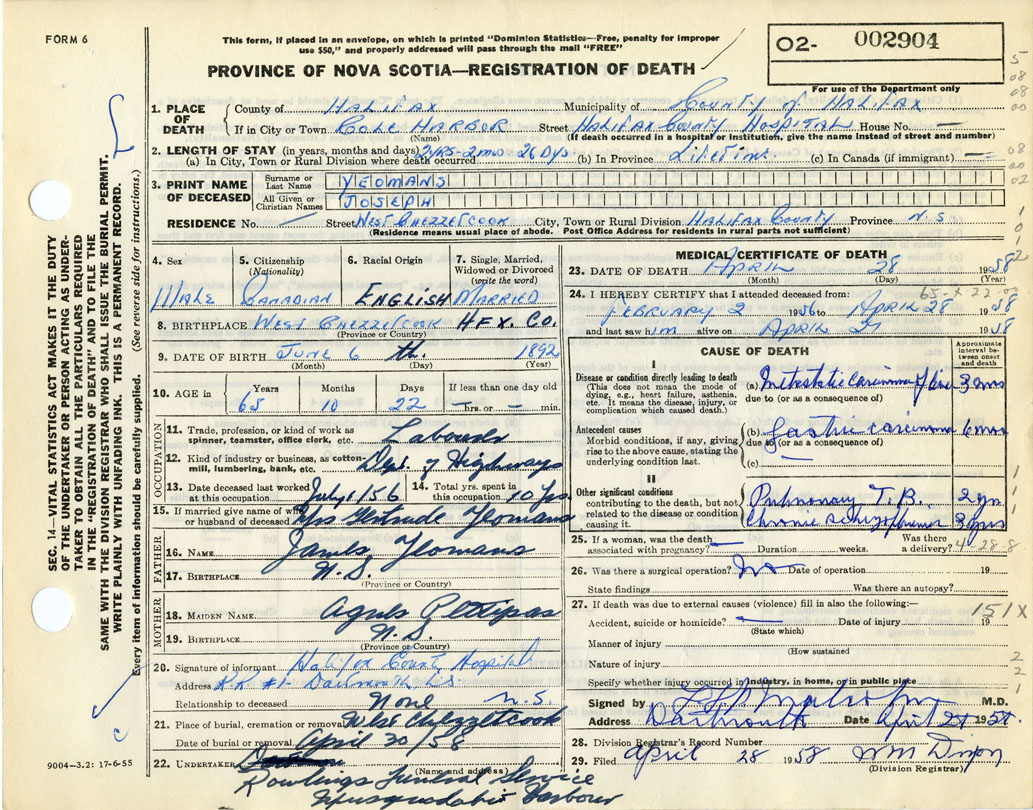 FORM 6
This form, if placed in an envelope, on which is printed "Dominion Statistics—Free, penalty for improper
use $50," and properly addressed will pass through the mail "FREE"
PROVINCE OF NOVA SCOTIA—REGISTRATION OF DEATH
02- 002904
For use of the Department only
1. PLACE OF DEATH
County of HALIFAX Municipality of COUNTY OF HALIFAX
If in City or Town COLE HARBOR Street HALIFAX COUNTY HOSPITAL House No. —
(Name) (If death occurred in a hospital or institution, give the name instead of street and number)
2. LENGTH OF STAY (in years, months and days)
(a) In City, Town or Rural Division where death occurred 2YRS-2MO 26 DYS (b) In Province Lifetime. (c) In Canada (if immigrant) —
3. PRINT NAME OF DECEASED
Surname or Last Name YEOMANS
All Given or Christian Names JOSEPH
RESIDENCE No. — Street WEST CHEZZETCOOK City, Town or Rural Division HALIFAX COUNTY Province N.S
(Residence means usual place of abode. Post Office Address for residents in rural parts not sufficient)
4. Sex MALE
5. Citizenship (Nationality) CANADIAN
6. Racial Origin ENGLISH
7. Single, Married, Widowed or Divorced (write the word) MARRIED
8. BIRTHPLACE WEST CHEZZETCOOK HFX. CO.
(Province or Country)
9. DATE OF BIRTH JUNE 6 th. 1892
(Month) (Day) (Year)
10. AGE in Years 65 Months 10 Days 22 If less than one day old — hrs. or — min.
OCCUPATION
11. Trade, profession, or kind of work as spinner, teamster, office clerk, etc. Labourer
12. Kind of industry or business, as cotton-mill, lumbering, bank, etc. Dept. of Highways
13. Date deceased last worked at this occupation July 1/56 14. Total yrs. spent in this occupation 10 yrs
15. If married give name of wife or husband of deceased Mrs Gertrude Yeomans
FATHER
16. NAME James Yeomans
17. BIRTHPLACE N.S.
(Province or Country)
MOTHER
18. MAIDEN NAME Agnes Pettipas
19. BIRTHPLACE N.S.
(Province or Country)
20. Signature of informant Halifax County Hospital
Address RR #1 Dartmouth
Relationship to deceased None N.S.
21. Place of burial, cremation or removal West Chezzetcook
Date of burial or removal April 30/58
22. UNDERTAKER
(Name and address)
Rowlings Funeral Service
Musquodoboit Harbour
MEDICAL CERTIFICATE OF DEATH
23. DATE OF DEATH APRIL 28 1958
(Month) (Day) (Year)
24. I HEREBY CERTIFY that I attended deceased from: 65-X 22-00
FEBRUARY 2 1956 to APRIL 28 1958
and last saw him alive on APRIL 27 1958
CAUSE OF DEATH
Approximate interval between onset and death
I
Disease or condition directly leading to death
(This does not mean the mode of dying, e.g., heart failure, asthenia, etc. It means the disease, injury, or complication which caused death.)
(a) Metastatic carcinoma of liver 3 mos
due to (or as a consequence of)
Antecedent causes
Morbid conditions, if any, giving rise to the above cause, stating the underlying condition last.
(b) Gastric carcinoma 6 mos
due to (or as a consequence of)
(c) —
II
Other significant conditions contributing to the death, but not related to the disease or condition causing it.
Pulmonary T.B. 2 yrs
Chronic schizophrenia 3 yrs
25. If a woman, was the death associated with pregnancy? — Duration weeks. Was there a delivery? 4-28-8
26. Was there a surgical operation? No Date of operation 19
State findings Was there an autopsy?
27. If death was due to external causes (violence) fill in also the following:— 151X
Accident, suicide or homicide? — Date of injury 19
(State which)
Manner of injury
(How sustained
Nature of injury
Specify whether injury occurred in industry, in home, or in public place
Signed by M.D.
Address Dartmouth Date April 28 1958.
28. Division Registrar's Record Number
29. Filed April 28 1958 Dixon
(Division Registrar)
SEC. 14—VITAL STATISTICS ACT MAKES IT THE DUTY
OF THE UNDERTAKER OR PERSON ACTING AS UNDER-
TAKER TO OBTAIN ALL THE PARTICULARS REQUIRED
IN THE "REGISTRATION OF DEATH" AND TO FILE THE
SAME WITH THE DIVISION REGISTRAR WHO SHALL ISSUE THE BURIAL PERMIT.
WRITE PLAINLY WITH UNFADING INK. THIS IS A PERMANENT RECORD.
Every item of information should be carefully supplied. (See reverse side for instructions.)
9004—3.2: 17-6-55